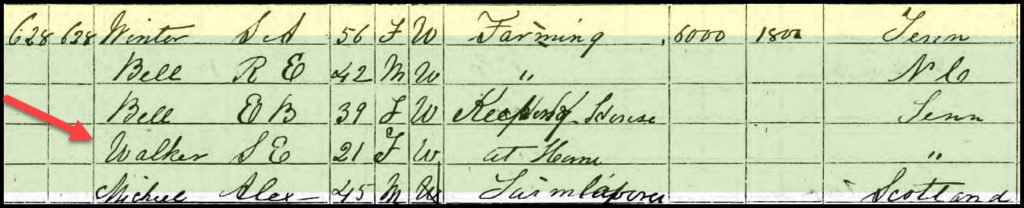 628 628 Winter S A 56 F W Farming 6000 1800 Tenn
Bell R E 42 M W " N C
Bell E B 39 F W Keeping House Tenn
Walker S E 21 F W at Home "
Michael Alex 45 M W Farm laborer Scotland